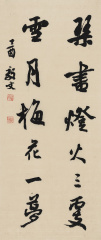 琹書燈火三更
雪月梅花一夢
丁酉